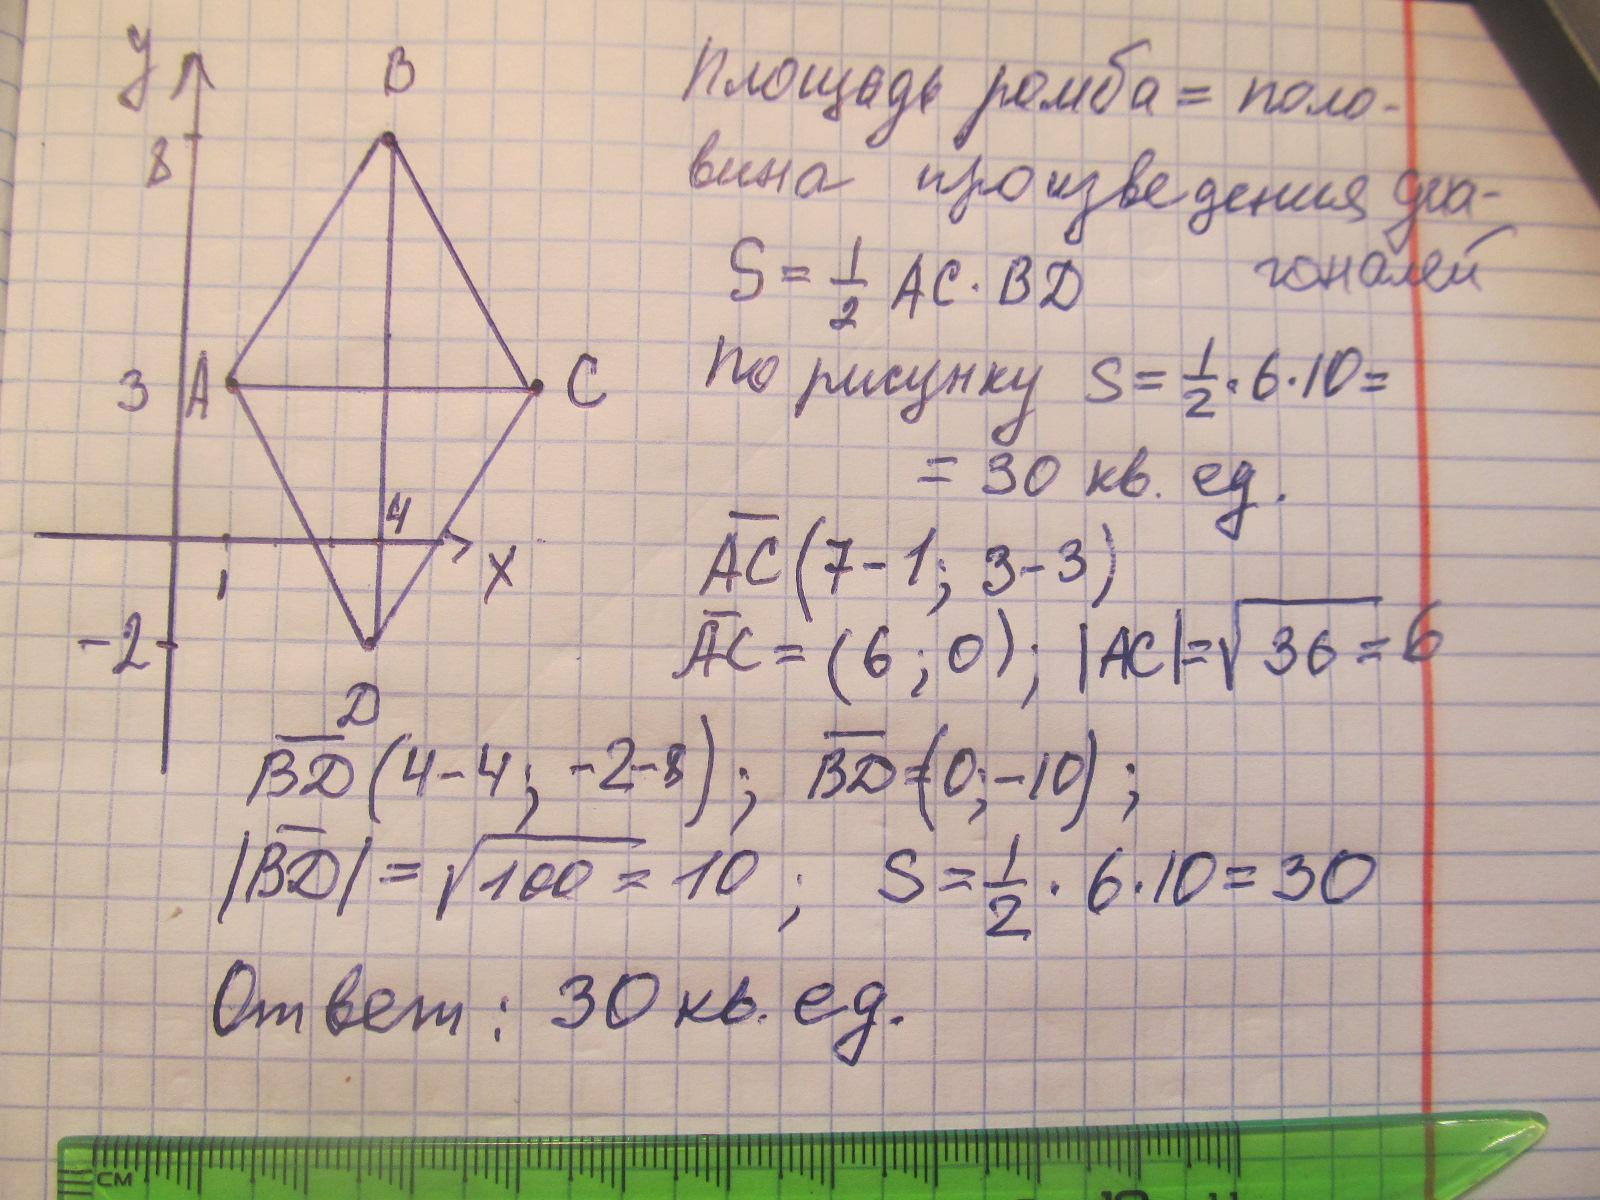 y
B
8
3 A
C
4
1
x
-2
D
Площадь ромба = поло-
вина произведения диа-
гоналей
S = 1/2 AC · BD
По рисунку S = 1/2 · 6 · 10 =
= 30 кв. ед.
A̅C̅ (7-1; 3-3)
A̅C̅ = (6; 0); |AC| = √36 = 6
B̅D̅ (4-4; -2-8); B̅D̅ = (0; -10);
|B̅D̅| = √100 = 10; S = 1/2 · 6 · 10 = 30
Ответ: 30 кв. ед.
см